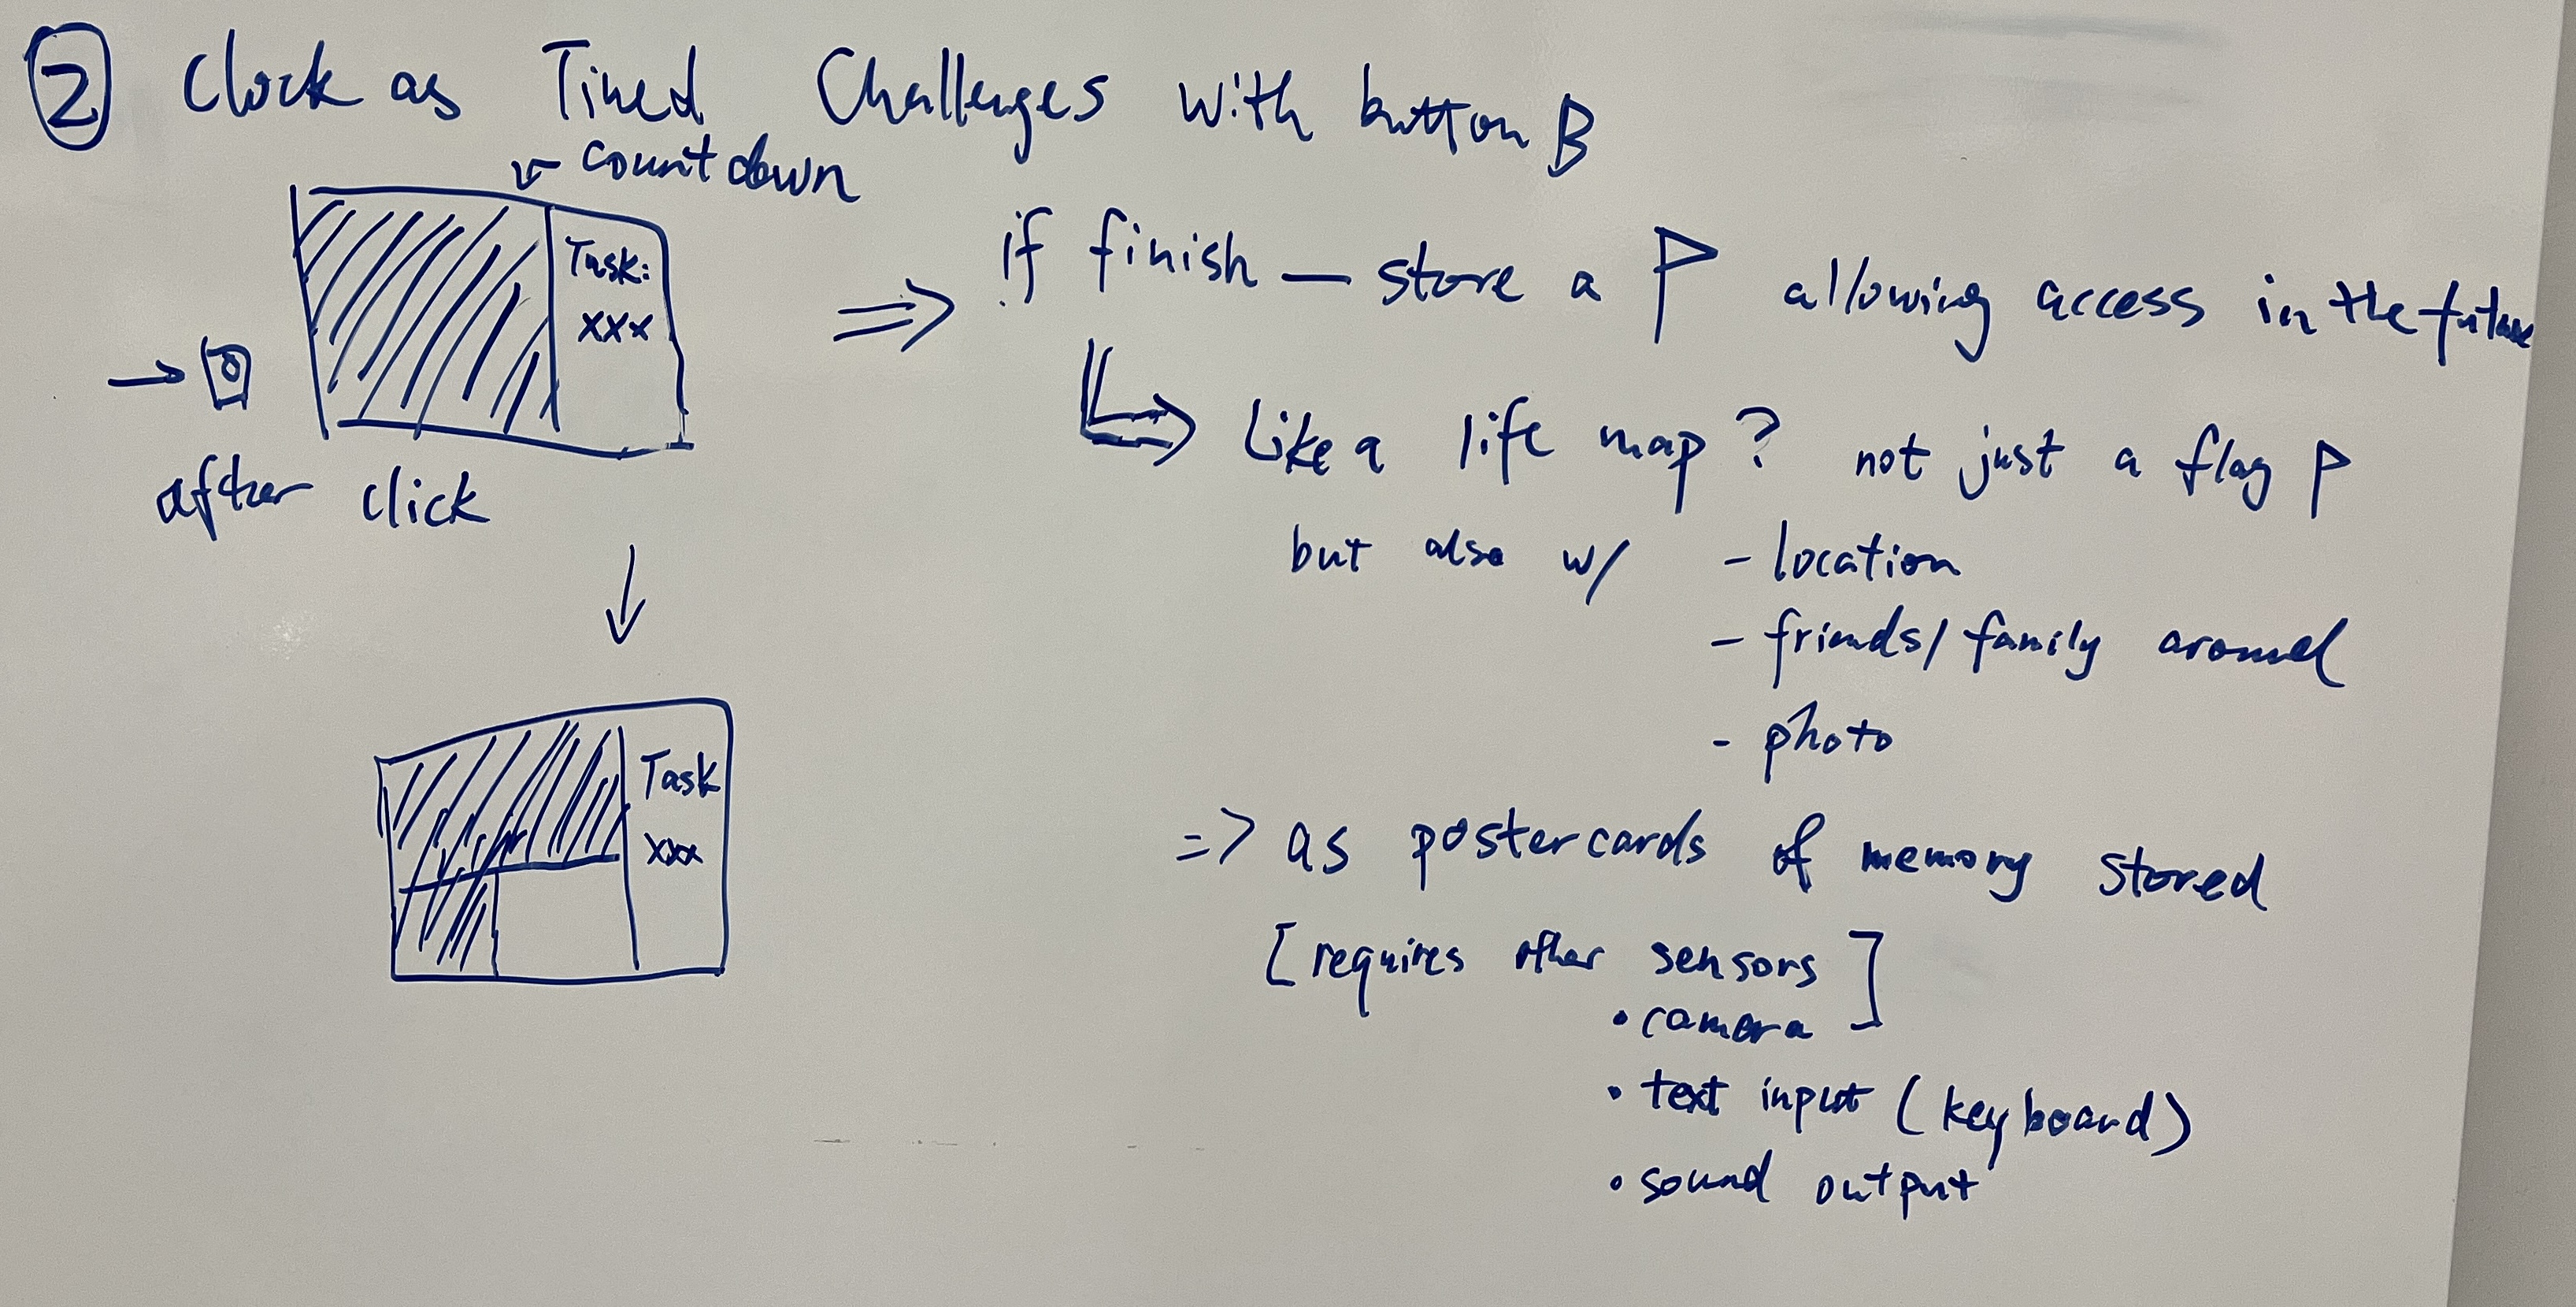 2 Clock as Timed Challenges with button B
countdown
Task:
xxx
after click
Task
xxx
if finish — store a P allowing access in the future
Like a life map? not just a flag P
but also w/ - location
- friends/family around
- photo
=> as postercards of memory stored
[requires other sensors]
• camera
• text input (keyboard)
• sound output